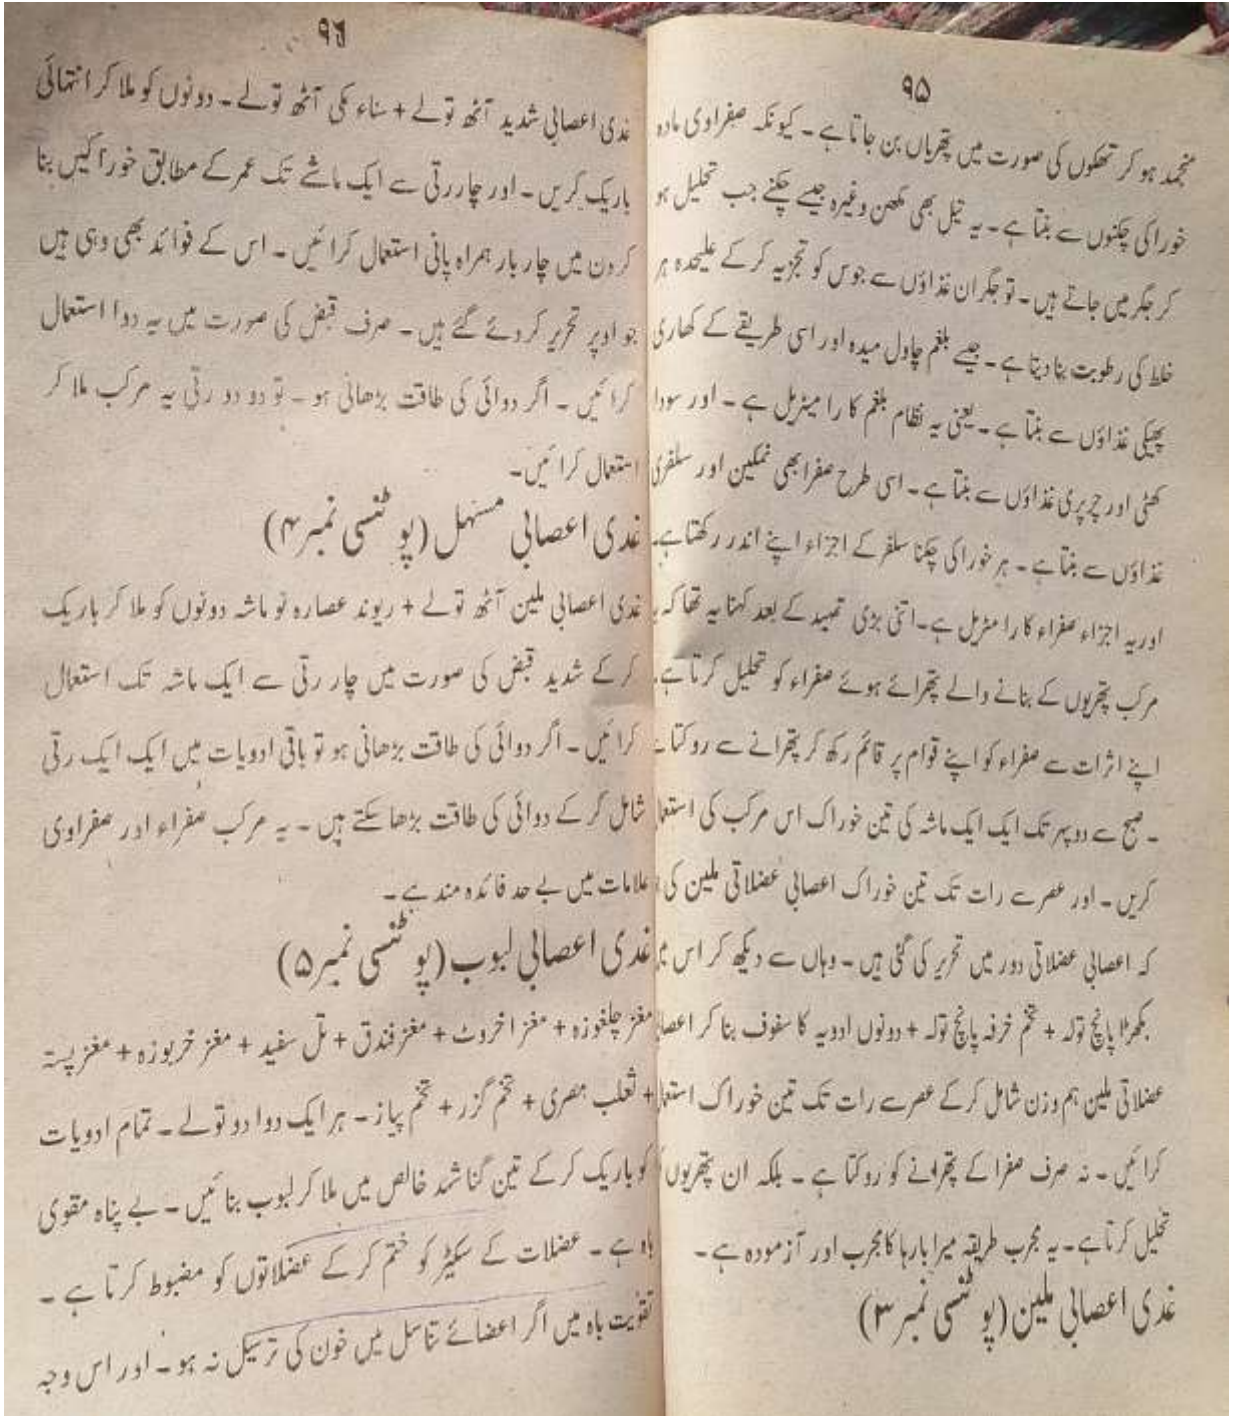 ۹۵
منجمد ہو کر تھکوں کی صورت میں پتھریاں بن جاتا ہے۔ کیونکہ صفراوی مادہ
خوراکی چکنوں سے بنتا ہے۔ یہ تیل بھی مکھن وغیرہ جیسے چکنے جب تحلیل ہو
کر جگر میں جاتے ہیں۔ تو جگر ان غذاؤں سے جوس کو تجزیہ کرکے علیحدہ ہر
خلط کی رطوبت بنا دیتا ہے۔ جیسے بلغم چاول میدہ اور اسی طریقے کے کھاری
پھیکی غذاؤں سے بنتا ہے۔ یعنی یہ نظام بلغم کا را میٹریل ہے۔ اور سودا
کھٹی اور چرپری غذاؤں سے بنتا ہے۔ اسی طرح صفرا بھی نمکین اور سلفری
غذاؤں سے بنتا ہے۔ ہر خوراکی چکنا سلفر کے اجزاء اپنے اندر رکھتا ہے۔
اور یہ اجزاء صفراء کا را مٹریل ہے۔ اتنی بڑی تمہید کے بعد کہنا یہ تھا کہ
مرکب پتھریوں کے بنانے والے پتھرائے ہوئے صفراء کو تحلیل کرتا ہے۔
اپنے اثرات سے صفراء کو اپنے قوام پر قائم رکھ کر پتھرانے سے روکتا
۔ صبح سے دوپہر تک ایک ایک ماشہ کی تین خوراک اس مرکب کی استعما
کریں۔ اور عصر سے رات تک تین خوراک اعصابی عضلاتی ملین کی
کہ اعصابی عضلاتی دور میں تحریر کی گئی ہیں۔ وہاں سے دیکھ کر اس میں
بکھڑا پانچ تولہ + تخم خرفہ پانچ تولہ + دونوں ادویہ کا سفوف بنا کر اعصا
عضلاتی ملین ہم وزن شامل کرکے عصر سے رات تک تین خوراک استعما
کرائیں۔ نہ صرف صفرا کے پتھرانے کو روکتا ہے۔ بلکہ ان پتھریوں
تحلیل کرتا ہے۔ یہ مجرب طریقہ میرا بارہا کا مجرب اور آزمودہ ہے۔
غدی اعصابی ملین (پوٹنسی نمبر ۳)
۹۶
غدی اعصابی شدید آٹھ تولے + سناء مکی آٹھ تولے۔ دونوں کو ملا کر انتہائی
باریک کریں۔ اور چار رتی سے ایک ماشے تک عمر کے مطابق خوراکیں بنا
کر دن میں چار بار ہمراہ پانی استعمال کرائیں۔ اس کے فوائد بھی وہی ہیں
جو اوپر تحریر کر دئے گئے ہیں۔ صرف قبض کی صورت میں یہ دوا استعمال
کرائیں۔ اگر دوائی کی طاقت بڑھانی ہو۔ تو دو دو رتی یہ مرکب ملا کر
استعمال کرائیں۔
غدی اعصابی مسہل (پوٹنسی نمبر ۴)
غدی اعصابی ملین آٹھ تولے + ریوند عصارہ نو ماشہ دونوں کو ملا کر باریک
کرکے شدید قبض کی صورت میں چار رتی سے ایک ماشہ تک استعمال
کرائیں۔ اگر دوائی کی طاقت بڑھانی ہو تو باقی ادویات میں ایک ایک رتی
شامل کرکے دوائی کی طاقت بڑھا سکتے ہیں۔ یہ مرکب صفراء اور صفراوی
علامات میں بے حد فائدہ مند ہے۔
غدی اعصابی لبوب (پوٹنسی نمبر ۵)
مغز چلغوزہ + مغز اخروٹ + مغز فندق + تل سفید + مغز خربوزہ + مغز پستہ
+ ثعلب مصری + تخم گزر + تخم پیاز۔ ہر ایک دوا دو تولے۔ تمام ادویات
کو باریک کرکے تین گنا شہد خالص میں ملا کر لبوب بنائیں۔ بے پناہ مقوی
باہ ہے۔ عضلات کے سکیڑ کو ختم کرکے عضلاتوں کو مضبوط کرتا ہے۔
تقویت باہ میں اگر اعضائے تناسل میں خون کی ترسیل نہ ہو۔ اور اس وجہ